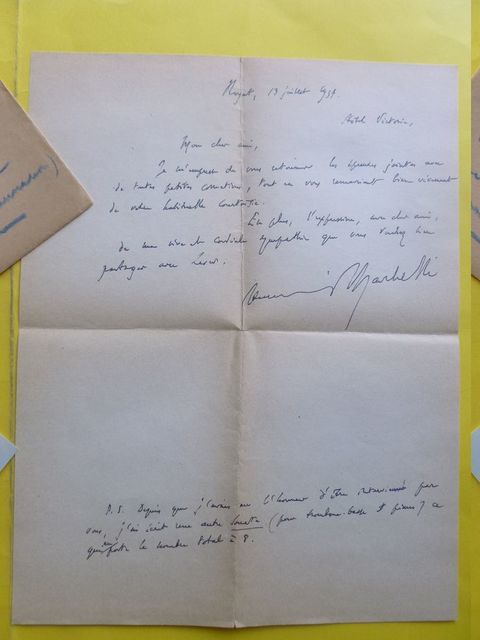 Royat, 13 juillet 1957.
Hotel Victoria,
Mon cher ami,
Je m'empresse de vous retourner les épreuves jointes avec
de toutes petites corrections, tout en vous remerciant bien vivement
de votre habituelle courtoisie.
En plus, l'expression, mon cher ami,
de ma vive et cordiale sympathie que vous voudrez bien
partager avec
P.S. Depuis que j'avais eu l'honneur d'être interviewé par
vous, j'ai écrit une autre Sonate (pour trombone-basse et piano) ce
qui en porte le nombre total à 8.